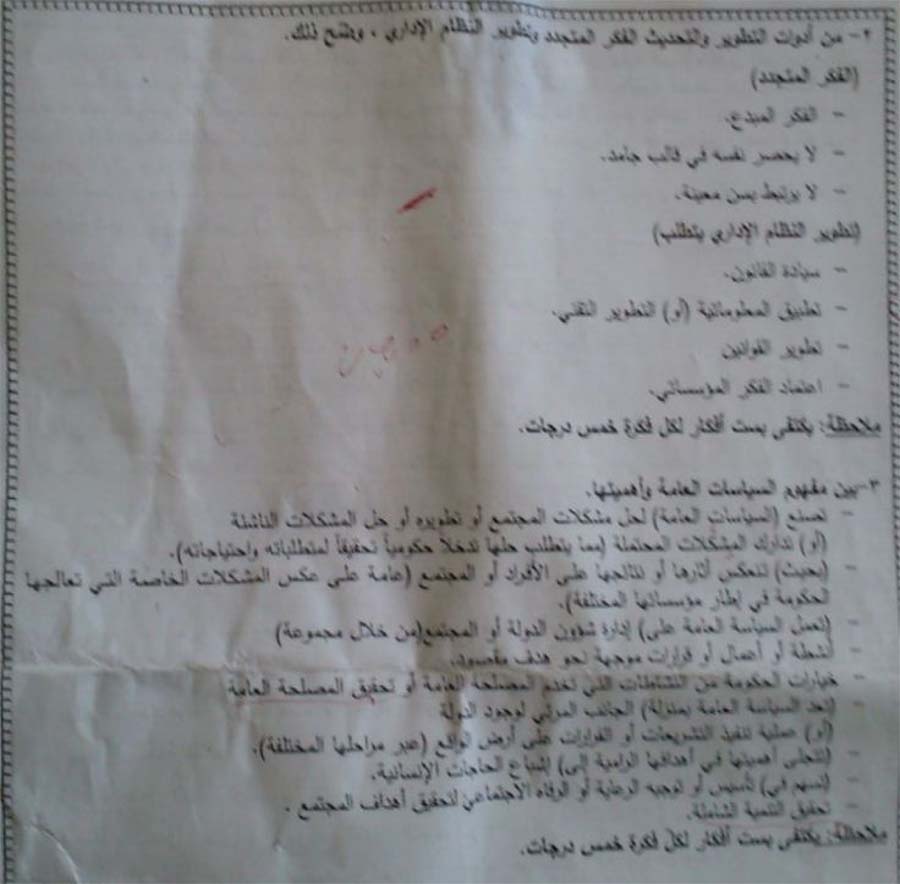 ٢- من أدوات التطوير والتحديث الفكر المتجدد وتطوير النظام الإداري ، وضّح ذلك.
(الفكر المتجدد)
- الفكر المبدع.
- لا يحصر نفسه في قالب جامد.
- لا يرتبط بسن معينة.
(تطوير النظام الإداري يتطلب)
- سيادة القانون.
- تطبيق المعلوماتية (أو) التطوير التقني.
- تطوير القوانين
- اعتماد الفكر المؤسساتي.
ملاحظة: يكتفى بست أفكار لكل فكرة خمس درجات.
٣- بين مفهوم السياسات العامة وأهميتها.
- تصنع (السياسات العامة) لحل مشكلات المجتمع أو تطويره أو حل المشكلات الناشئة
(أو) تدارك المشكلات المحتملة (مما يتطلب حلها تدخلاً حكومياً تحقيقاً لمتطلباته واحتياجاته).
- (بحيث) تنعكس آثارها أو نتائجها على الأفراد أو المجتمع (عامة على عكس المشكلات الخاصة التي تعالجها
الحكومة في إطار مؤسساتها المختلفة).
- (تعمل السياسة العامة على) إدارة شؤون الدولة أو المجتمع(من خلال مجموعة)
- أنشطة أو أعمال أو قرارات موجهة نحو هدف مقصود.
- خيارات الحكومة من النشاطات التي تخدم المصلحة العامة أو تحقيق المصلحة العامة
- (تعد السياسة العامة بمنزلة) الجانب المرئي لوجود الدولة
(أو) عملية تنفيذ التشريعات أو القرارات على أرض الواقع (عبر مراحلها المختلفة).
- (تتجلى أهميتها في أهدافها الرامية إلى) إشباع الحاجات الإنسانية.
- (تسهم في) تأسيس أو توجيه الرعاية أو الرفاه الاجتماعي لتحقيق أهداف المجتمع .
- تحقيق التنمية الشاملة.
ملاحظة: يكتفى بست أفكار لكل فكرة خمس درجات.